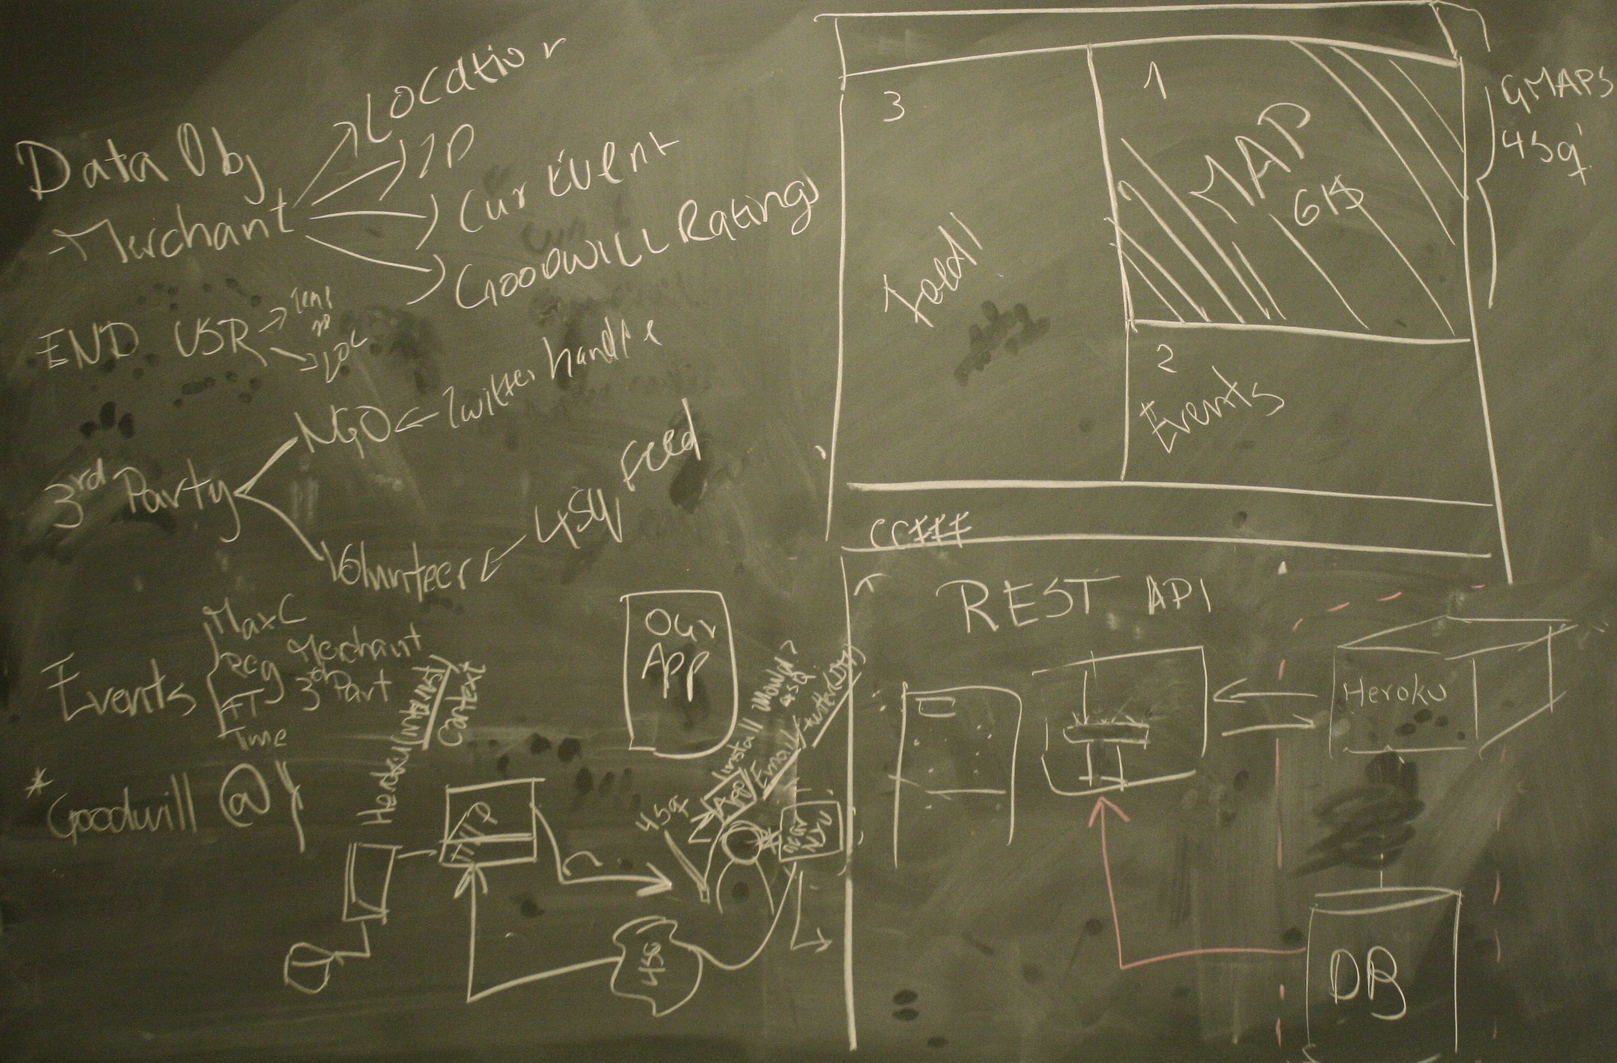 Data Obj
- Merchant
Location
ID
Cur Event
GOODWILL Ratings
END USR
LOC
3rd Party
NGO
Twitter handle
Volunteer
4sq feed
Events
MaxC
reg Merchant
3rd Part
FT
Time
* Goodwill @
Heroku
Context
Our
App
4sq
App
Install
Email
near
NYU
4SQ
3
feed
1
MAP
GIS
2
Events
CC###
GMAPS
4sq
REST API
Heroku
DB